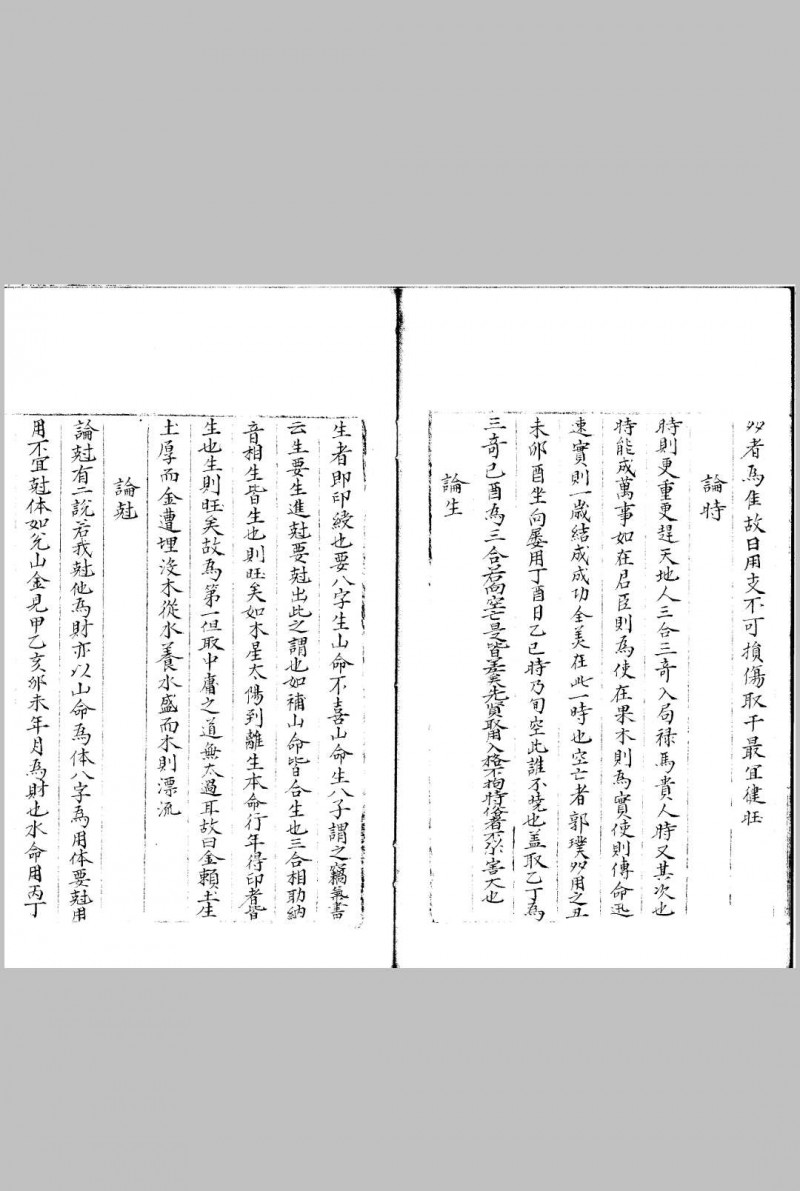 者為准故日用支不可損傷取干最宜健旺
論時
時則更重更趕天地人三合三奇入局祿馬貴人時又其次也
時能成萬事如在君臣則為使在果木則為實使則傳命迅
速實則一歲結成成功全美在此一時也空亡者郭璞用之丑
未卯酉坐向屡用丁酉日乙巳時乃旬空此誰不境也盖取乙丁為
三奇巳酉為三合若向空亡是皆先賢取用入格不拘時俗者不尔害大也
論生
生者即印綬也要八字生山命不喜山命生八子謂之竊氣書
云生要生進尅要尅出此之謂也如補山命皆合生也三合相助納
音相生皆生也則旺矣如木星太陽到離生本命行年得印者皆
生也生則旺矣故為第一但取中庸之道無太過耳故曰金賴土生
土厚而金遭埋沒木從水養水盛而木則漂流
論尅
論尅有二說若我尅他為財亦以山命為体八字為用体要尅用
用不宜尅体如兊山金見甲乙亥卯未年月為財也水命用丙丁